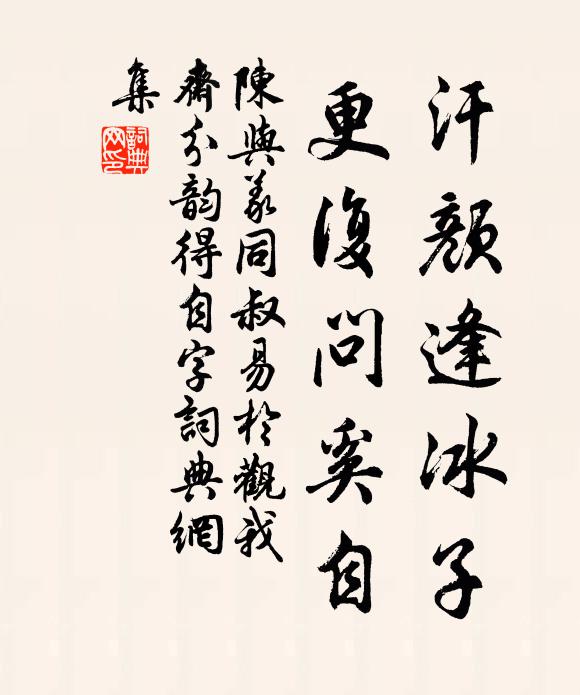 汗顏逢冰子
更復問奚自
陳與義同叔易於觀我
齋分韵得自字詞典網
集
詞典
网印